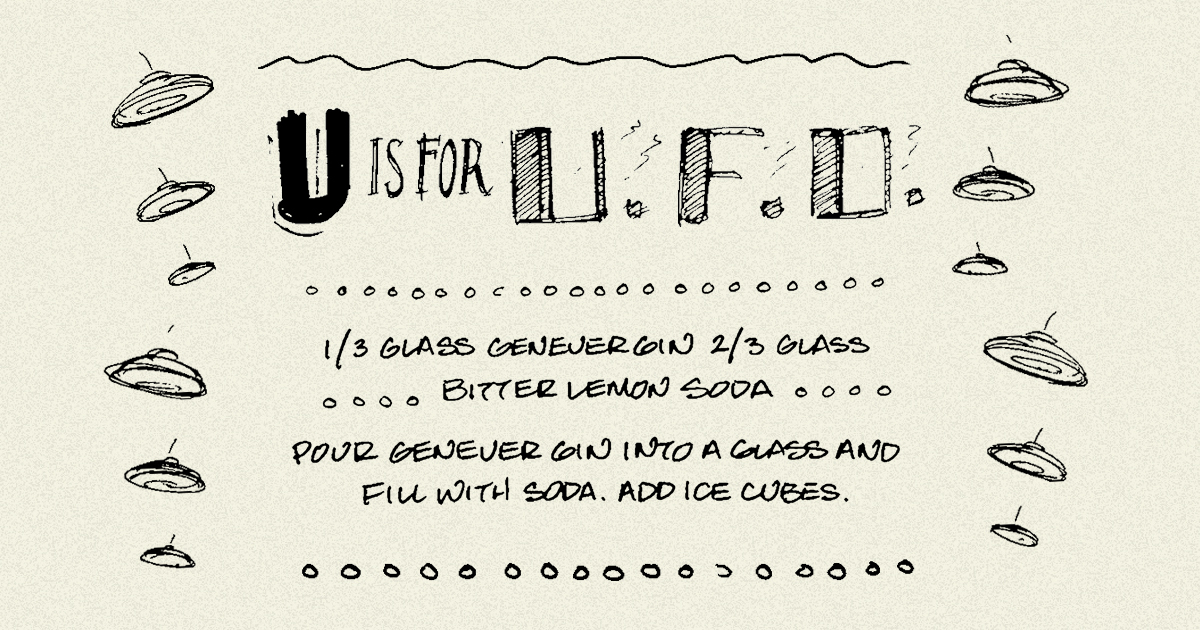 U IS FOR U.F.O.
1/3 GLASS GENEVER GIN 2/3 GLASS
BITTER LEMON SODA
POUR GENEVER GIN INTO A GLASS AND
FILL WITH SODA. ADD ICE CUBES.